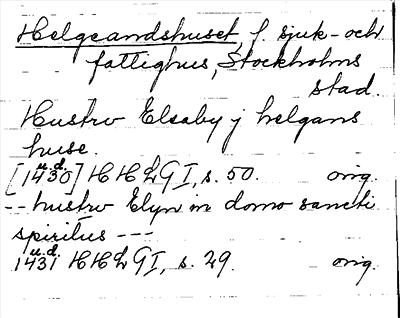 Helgeandshuset, f. sjuk- och
fattighus, Stockholms
stad.
Hustrv Elsaby j helgans
huse.
[u.d. 1430] HHLG I, s. 50. orig.
-- hustrv Elyn in domo sancti
spiritus ---
u.d. 1431 HHLG I, s. 29. orig.